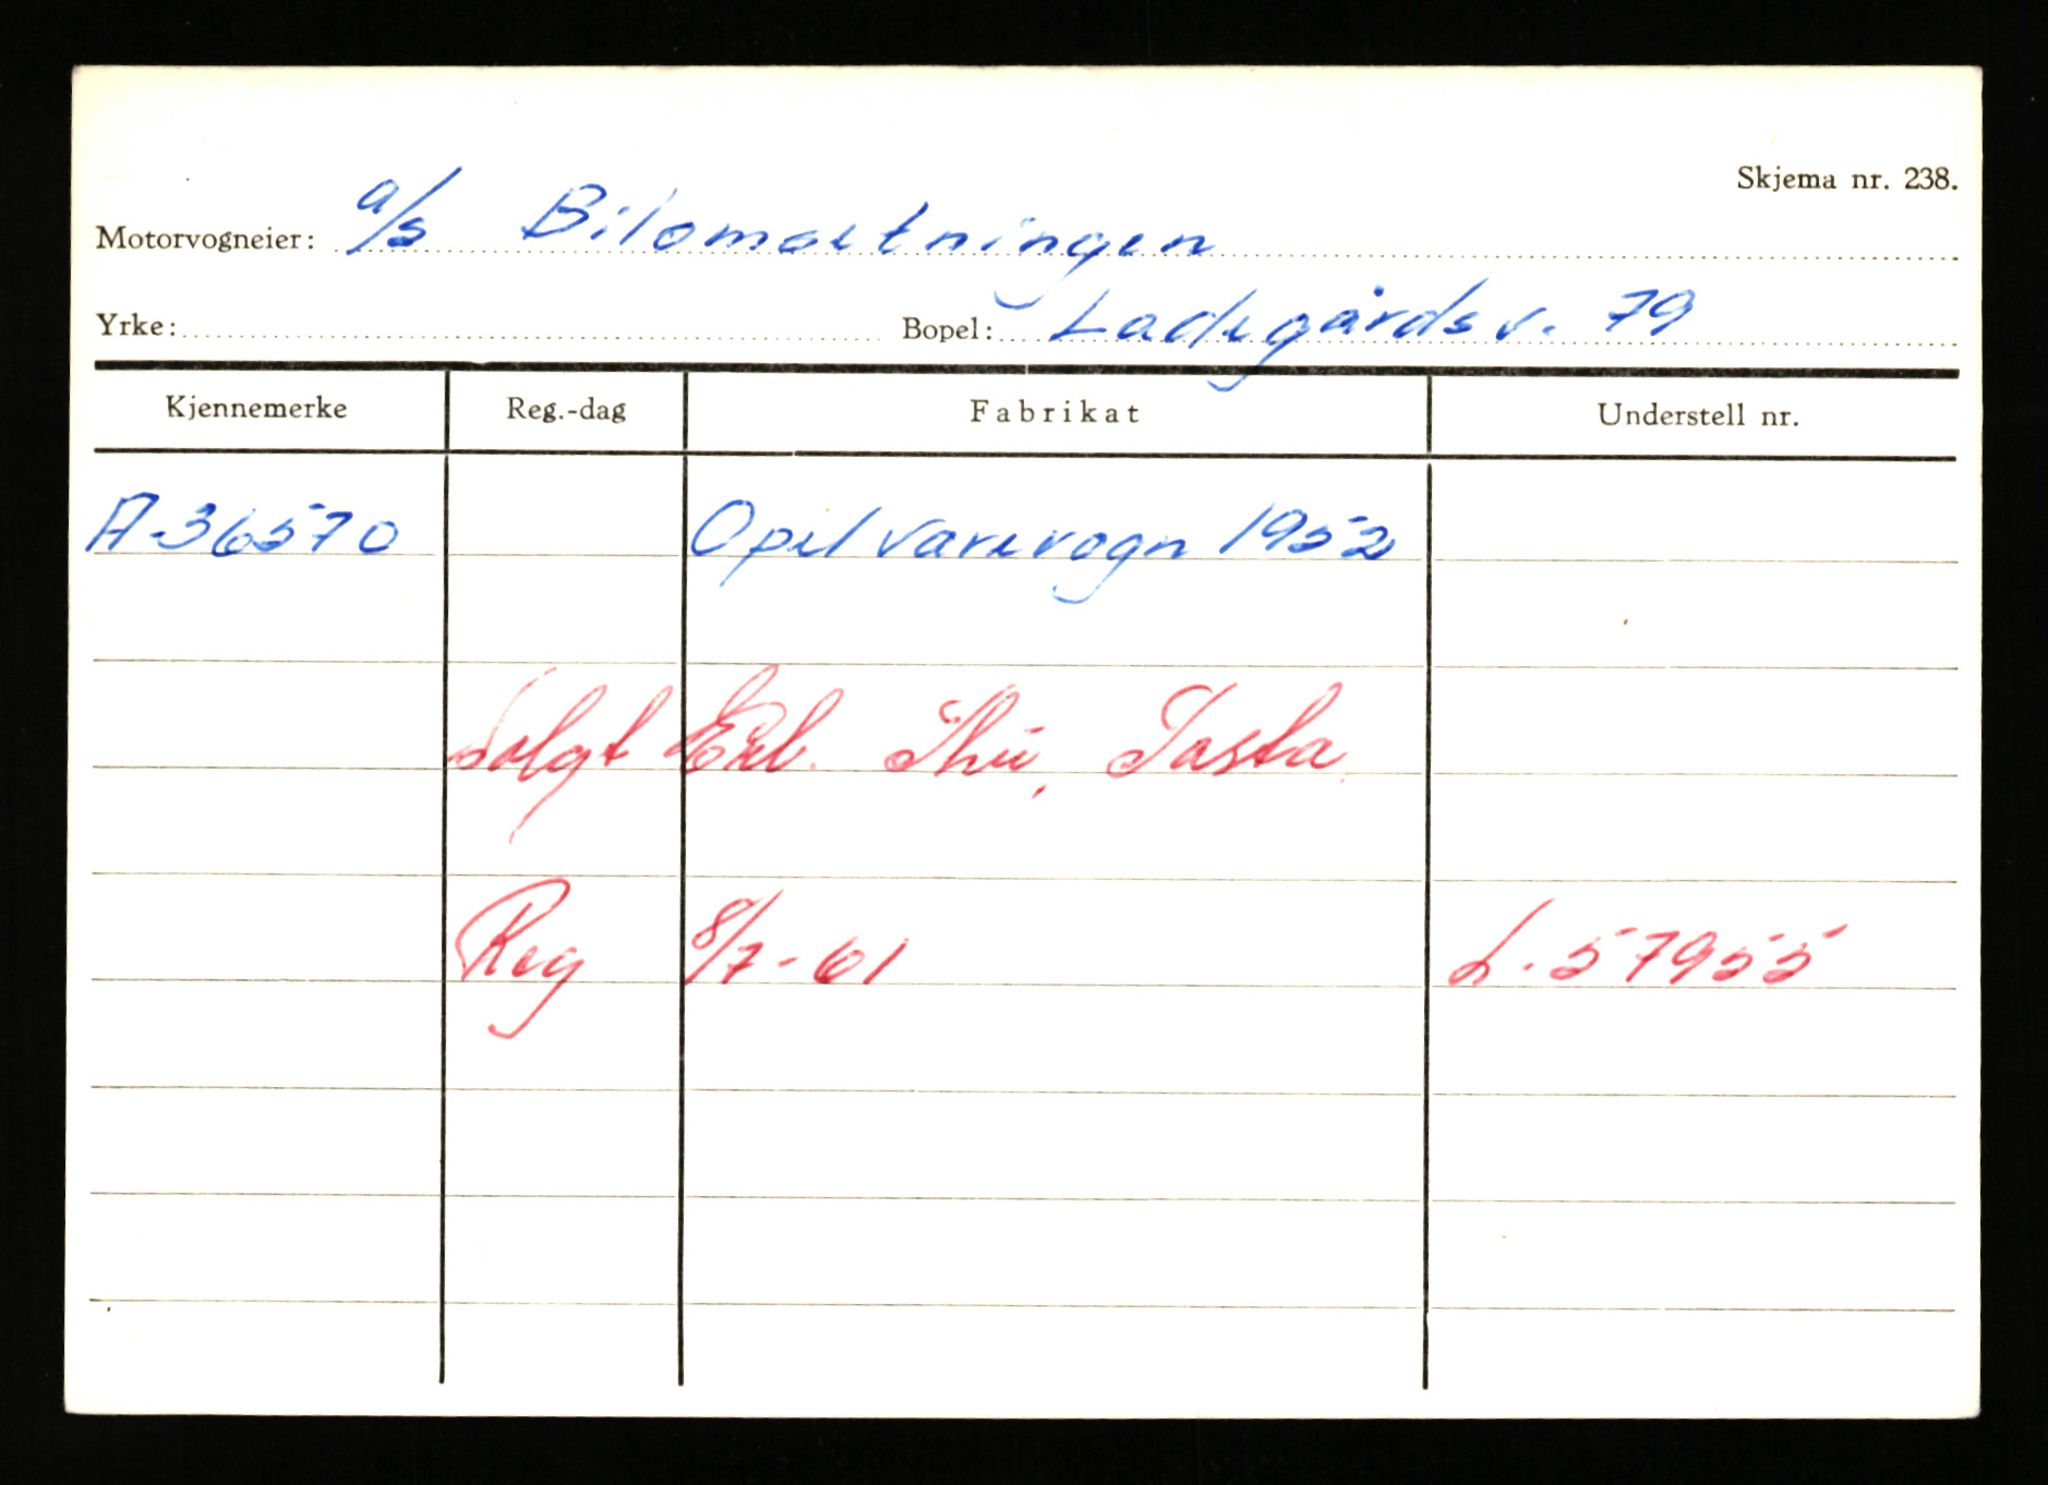 Skjema nr. 238.
Motorvogneier: a/s Bilomsetningen
Yrke: Bopel: Ladegårdsv. 79
Kjennemerke Reg.-dag Fabrikat Understell nr.
A-36570 Opel varevogn 1952
Solgt
Reg 8/7-61 L.57955